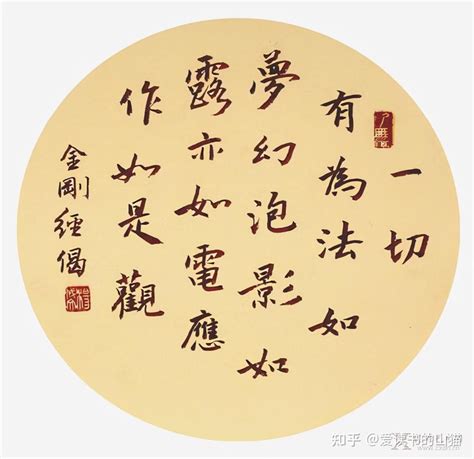 一切
有為法如
夢幻泡影如
露亦如電應
作如是觀
金剛經偈
知乎 @爱读书的山猫